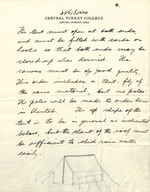 CENTRAL TURKEY COLLEGE
The tent must open at both ends,
and must be fitted with cords or
hooks so that both ends may be
closed up when desired. The
canvas must be of good quality.
This order includes a tent fly of
the same material, but no poles.
The poles will be made to order here
in Aintab. The shape of the
tent is to be in general as indicated
below, but the slant of the roof must
be sufficient to shed rain water
easily.